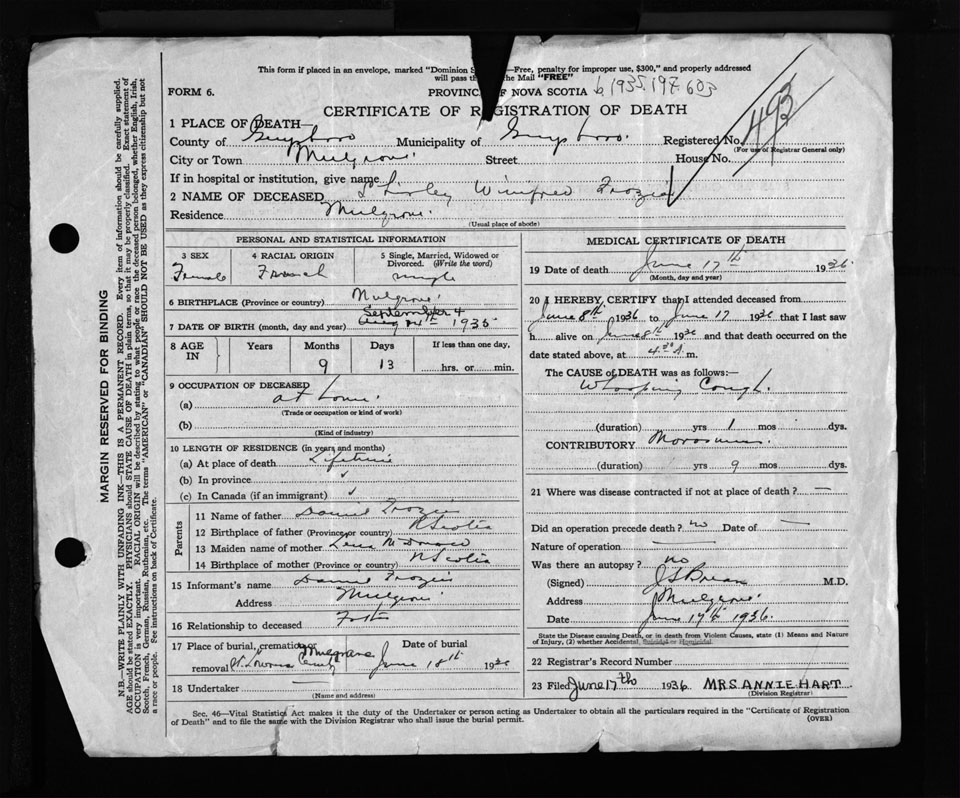 This form if placed in an envelope, marked "Dominion S —Free, penalty for improper use, $300," and properly addressed
will pass th the Mail "FREE"
FORM 6. PROVINC OF NOVA SCOTIA b 1935.197.603
CERTIFICATE OF REGISTRATION OF DEATH
493
1 PLACE OF DEATH—
County of Guysboro Municipality of Guysboro. Registered No.
(For use of Registrar General only)
City or Town Mulgrave. Street House No.
If in hospital or institution, give name
2 NAME OF DECEASED Shirley Winifred
Residence Mulgrave.
(Usual place of abode)
PERSONAL AND STATISTICAL INFORMATION
3 SEX 4 RACIAL ORIGIN 5 Single, Married, Widowed or Divorced. (Write the word)
Female French single
6 BIRTHPLACE (Province or country) Mulgrave.
September 4
7 DATE OF BIRTH (month, day and year) 1935
8 AGE IN Years Months Days If less than one day,
9 13 hrs. or min.
9 OCCUPATION OF DECEASED
(a) at home.
(Trade or occupation or kind of work)
(b)
(Kind of industry)
10 LENGTH OF RESIDENCE (in years and months)
(a) At place of death Lifetime
(b) In province ✓
(c) In Canada (if an immigrant) ✓
Parents
11 Name of father Daniel
12 Birthplace of father (Province or country) N Scotia
13 Maiden name of mother Lena
14 Birthplace of mother (Province or country) N Scotia
15 Informant's name Daniel
Address Mulgrave
16 Relationship to deceased
17 Place of burial, cremation or removal Mulgrave Date of burial
June 18th 1936
18 Undertaker —
(Name and address)
MEDICAL CERTIFICATE OF DEATH
19 Date of death June 17th 1936.
(Month, day and year)
20 I HEREBY CERTIFY that I attended deceased from
June 8th 1936 to June 17 1936 that I last saw
h alive on June 8th 1936 and that death occurred on the
date stated above, at 4.30 A. m.
The CAUSE of DEATH was as follows:—
Whooping Cough.
(duration) yrs 1 mos dys.
CONTRIBUTORY
(duration) yrs 9 mos dys.
21 Where was disease contracted if not at place of death? —
Did an operation precede death? no Date of —
Nature of operation —
Was there an autopsy? no
(Signed) M.D.
Address Mulgrave.
Date June 17th 1936.
State the Disease causing Death, or in death from Violent Causes, state (1) Means and Nature
of Injury, (2) whether Accidental, Suicidal or Homicidal.
22 Registrar's Record Number
23 Filed June 17th 1936 MRS ANNIE HART
(Division Registrar)
Sec. 46—Vital Statistics Act makes it the duty of the Undertaker or person acting as Undertaker to obtain all the particulars required in the "Certificate of Registration
of Death" and to file the same with the Division Registrar who shall issue the burial permit. (OVER)
MARGIN RESERVED FOR BINDING
N.B.—WRITE PLAINLY WITH UNFADING INK—THIS IS A PERMANENT RECORD. Every item of information should be carefully supplied.
AGE should be stated EXACTLY. PHYSICIANS should STATE CAUSE OF DEATH in plain terms, so that it may be properly classified. Exact statement of
OCCUPATION is very important. RACIAL ORIGIN will be described by stating to what people or race the deceased person belonged, whether English, Irish,
Scotch, French, German, Russian, Ruthenian, etc. The terms "AMERICAN" or "CANADIAN" SHOULD NOT BE USED as they express citizenship but not
a race or people. See instructions on back of Certificate.